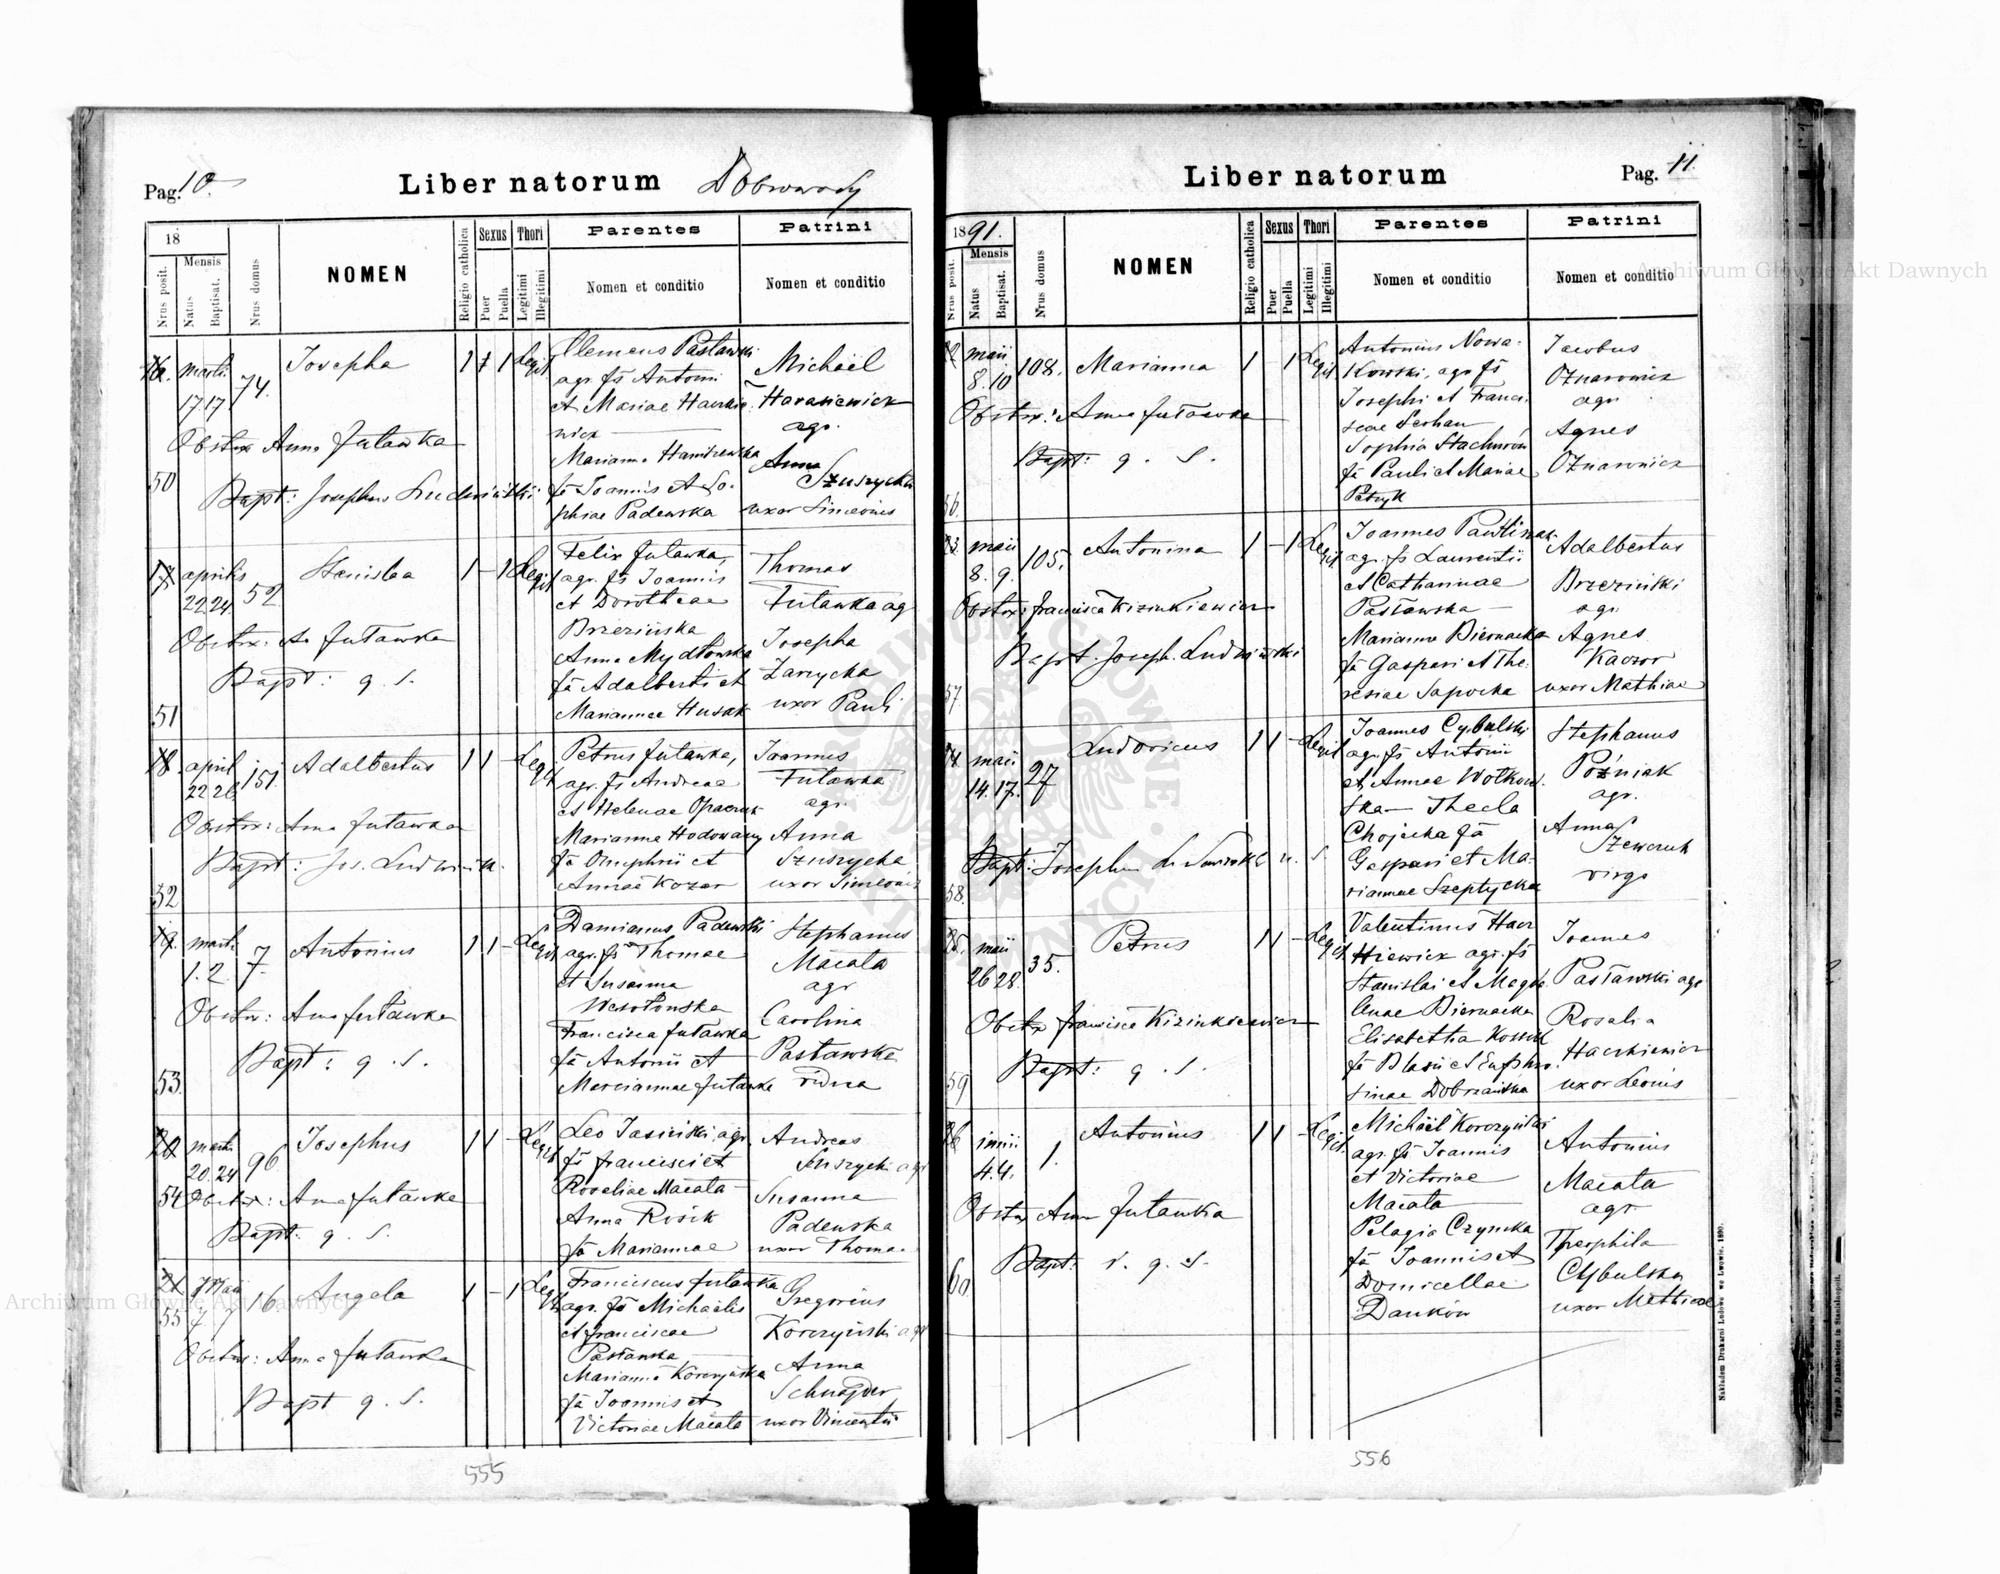 Pag. 10
Liber natorum Dobrowody
18
Mensis
Nrus posit.
Natus
Baptisat.
Nrus domus
NOMEN
Religio catholica
Sexus
Puer
Puella
Thori
Legitimi
Illegitimi
Parentes
Nomen et conditio
Patrini
Nomen et conditio
16. martii 17 17 74. Josepha 1 1 Legit
Clemens Pasławski
agr. fs Antonii
et Mariae
Marianna
fa Joannis et So-
phiae Padewska
Michaël
agr.
Anna
Szuszycka
uxor Simeonis
Obstxr Anna Jutawka
50
Bapt: Josephus Ludwiński
17 aprilis 22 24 52 Stanislaa 1 - 1 Legit
Felix Jutawka,
agr. fs Joannis
et Dorotheae
Brzezińska
Anna Mydłowska
fa Adalberti et
Mariannae Husak
Thomas
Futawka ag
Josepha
Zarzycka
uxor Pauli
Obstxr: An Jutawka
Bapt: q. s.
51
18. april 22 26 151. Adalbertus 1 1 - Legit
Petrus Jutawka,
agr. fs Andreae
et Helenae
Marianna Hodowany
fa Onuphrii et
Annae Kozar
Joannes
Futawka
agr.
Anna
Szuszycka
uxor Simeonis
Obstxr: Anna Jutawka
Bapt: Jos. Ludwiński.
52
19. marti 1. 2. 7. Antonius 1 1 - Legit
Damianus Padewski
agr. fs Thomae
et Susanna
Wesołowska
Francisca Jutawka
fa Antonii et
Mariannae Jutawka
Stephanus
Macata
agr
Carolina
Pasławska
vidua
Obstxr: Anna Jutawka
Bapt: q. s.
53
20 martii 20. 24 96 Josephus 1 1 - Legit
Leo Jasiński, agr
fs Francisci et
Rosaliae Macata
Anna Rosik
fa Mariannae
Andreas
Szuszycki agr
Susanna
Padewska
uxor Thomae
54 Obstxr: Anna Jutawka
Bapt: q. s.
21 Maii 7 7 16. Angela 1 - 1 Legit
Franciscus Jutawka
agr. fs Michaëlis
et Franciscae
Pasławska
Marianna Korczyńska
fa Joannis et
Victoriae Macata
Gregorius
Korczyński agr
Anna
Schnajder
uxor Vincentii
55
Obstxr: Anna Jutawka
Bapt q. s.
555
Liber natorum
Pag. 11.
1891.
Mensis
Nrus posit.
Natus
Baptisat.
Nrus domus
NOMEN
Religio catholica
Sexus
Puer
Puella
Thori
Legitimi
Illegitimi
Parentes
Nomen et conditio
Patrini
Nomen et conditio
22 maii 8. 10 108. Marianna 1 - 1 Legit
Antonius Nowa-
kowski, agr fs
Josephi et Franci
scae
Sophia Stachurów
fa Pauli et Mariae
Petryk
Jacobus
Oznarowicz
agr
Agnes
Oznarowicz
Obstxr: Anna Jutawka
Bapt: q. s.
56.
23. maii 8. 9. 105. Antonina 1 - 1 Legit
Joannes
agr. fs Laurentii
et Catharinae
Pasławska
Marianna Biernacka
fa Gaspari et The-
resiae Sapocka
Adalbertus
Brzeziński
agr.
Agnes
Kaczor
uxor Mathiae
Obstxr: Francisca Kizinkiewicz
Bapt. Joseph. Ludwiński
57
24 maii 14. 17. 27 Ludovicus 1 1 - Legit
Joannes Cybulski
agr. fs Antonii
et Annae Wołkow-
ska - Thecla
Chojecka fa
Gaspari et Ma-
riannae Szeptycka
Stephanus
Poźniak
agr.
Anna
Szewczuk
virgo
Bapt: Josephus
58.
25. maii 26 28 35. Petrus 1 1 - Legit
Valentinus Hacz
kiewicz agr. fs
Stanislai et Magda
lenae Biernacka
Elisabetha
fa Blasii et Euphro-
sinae Dobrzańska
Joannes
Pasławski agr
Rosalia
Haczkiewicz
uxor Leonis
Obstxr Francisca Kizinkiewicz
Bapt: q. s.
59
26 junii 4. 4. 1. Antonius 1 1 - Legit.
Michaël Korczyński
agr. fs Joannis
et Victoriae
Macata
Pelagia Czyncka
fa Joannis et
Domicellae
Dańków
Antonius
Macata
agr
Theophila
Cybulska
uxor Mathiae
Obstxr Anna Jutawka
Bapt: v. q. s.
60
556
Nakładem Drukarni Ludowej we Lwowie. 1890.
Archiwum Główne Akt Dawnych
Archiwum Główne Akt Dawnych